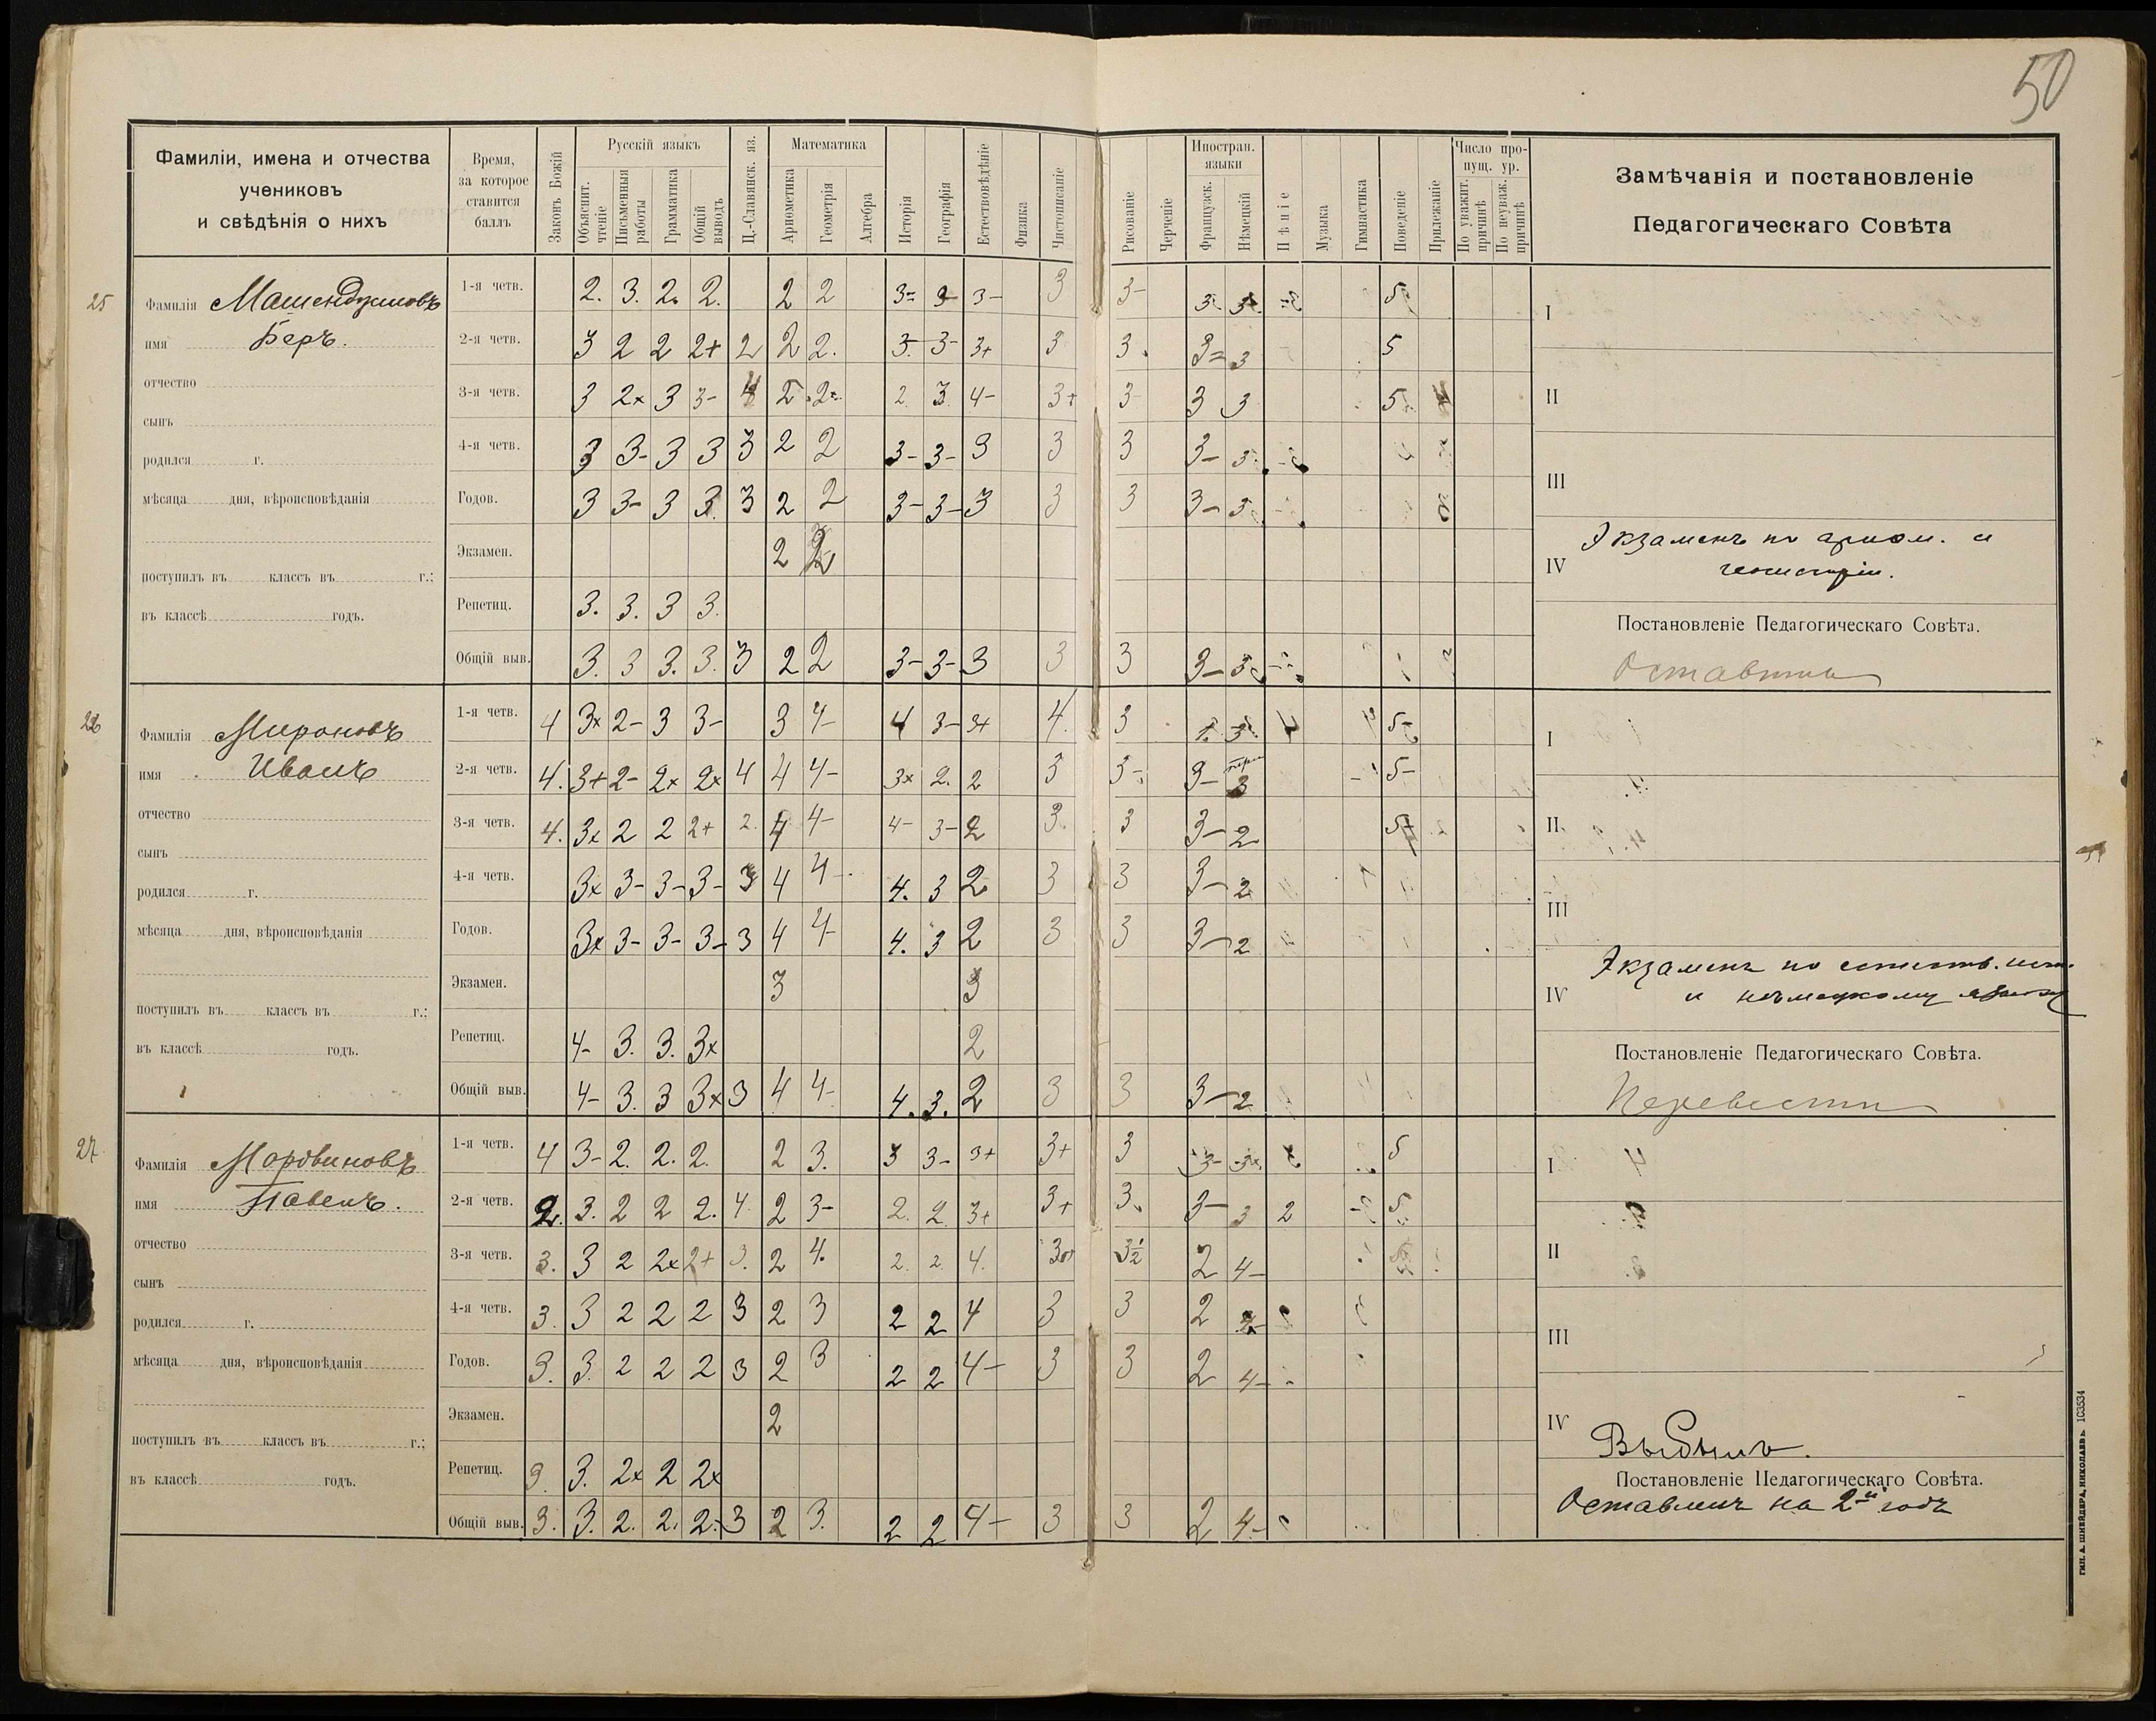 50
Фамилiи, имена и отчества
учениковъ
и свѣдѣнiя о нихъ
Время,
за которое
ставится
баллъ
Законъ Божiй
Русскiй языкъ
Объяснит. чтенiе
Письменныя работы
Грамматика
Общiй выводъ
Ц.-Славянск. яз.
Математика
Ариѳметика
Геометрiя
Алгебра
Исторiя
Географiя
Естествовѣдѣнiе
Физика
Чистописанiе
Рисованiе
Черченiе
Иностран.
языки
Французск.
Нѣмецкiй
Пѣнiе
Музыка
Гимнастика
Поведенiе
Прилежанiе
Число про-
пущ. ур.
По уважит. причинѣ
По неуваж. причинѣ
Замѣчанiя и постановленiе
Педагогическаго Совѣта
25
Фамилiя
имя Беръ.
отчество
сынъ
родился г.
мѣсяца дня, вѣроисповѣданiя
поступилъ въ классъ въ г.;
въ классѣ годъ.
1-я четв. 2. 3. 2. 2. 2 2 3= 3- 3- 3 3- 5
2-я четв. 3 2 2 2+ 2 2 2. 3- 3- 3+ 3 3. 3= 3 5
3-я четв. 3 2x 3 3- 2 3 4- 3+ 3 3 3 5
4-я четв. 3 3- 3 3 3 2 2 3- 3- 3 3 3 3-
Годов. 3 3- 3 3 3 2 2 3- 3- 3 3 3 3-
Экзамен. 2 2
Репетиц. 3. 3. 3 3.
Общiй выв. 3. 3 3. 3. 3 2 2 3- 3- 3 3 3 3-
I
II
III
IV
Экзаменъ по ариѳм. и
геометрiи.
Постановленiе Педагогическаго Совѣта.
Оставить
26
Фамилiя Мироновъ
имя Иванъ
отчество
сынъ
родился г.
мѣсяца дня, вѣроисповѣданiя
поступилъ въ классъ въ г.;
въ классѣ годъ.
1-я четв. 4 3x 2- 3 3- 3 4- 4 3- 3+ 4. 3 5-
2-я четв. 4. 3+ 2- 2x 2x 4 4 4- 3x 2. 2 3 3- 3- 3 5-
3-я четв. 4. 3x 2 2 2+ 2. 4 4- 4- 3- 2 3. 3 3- 2
4-я четв. 3x 3- 3- 3- 3 4 4- 4. 3 2 3 3 3- 2
Годов. 3x 3- 3- 3- 3 4 4- 4. 3 2 3 3 3- 2
Экзамен. 3 3
Репетиц. 4- 3. 3. 3x 2
Общiй выв. 4- 3. 3 3x 3 4 4- 4. 3. 2 3 3 3- 2
I
II
III
IV
Экзаменъ по естеств. ист.
и нѣмецкому языку
Постановленiе Педагогическаго Совѣта.
Перевести
27
Фамилiя Мордвиновъ
имя Павелъ.
отчество
сынъ
родился г.
мѣсяца дня, вѣроисповѣданiя
поступилъ въ классъ въ г.;
въ классѣ годъ.
1-я четв. 4 3- 2. 2. 2. 2 3. 3 3- 3+ 3+ 3 3- 5
2-я четв. 2. 3. 2 2 2. 4. 2 3- 2. 2. 3+ 3+ 3. 3- 3 2 5
3-я четв. 3. 3 2 2x 2+ 3. 2 4. 2. 2. 4. 3½ 2 4-
4-я четв. 3. 3 2 2 2 3 2 3 2 2 4 3 3 2
Годов. 3. 3. 2 2 2 3 2 3 2 2 4- 3 3 2 4-
Экзамен. 2
Репетиц. 3. 3. 2x 2 2x
Общiй выв. 3. 3. 2. 2. 2. 3 2 3. 2 2 4- 3 3 2 4-
I
II
III
IV
Выбылъ.
Постановленiе Педагогическаго Совѣта.
Оставленъ на 2-й годъ
ТИП. А. ШНЕЙДЕРА, НИКОЛАЕВЪ. 103534